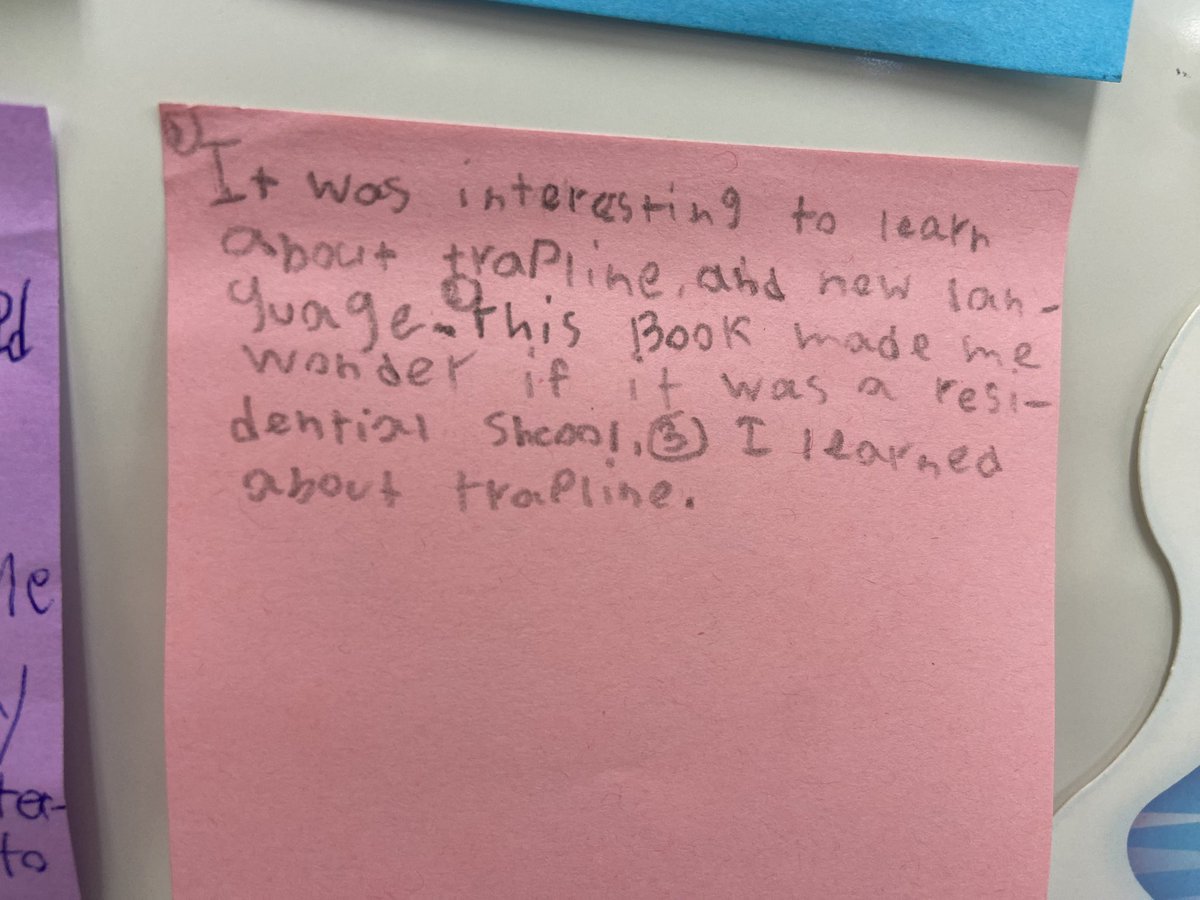 1) It was interesting to learn
about trapline, and new lan-
guage. 2) This Book made me
wonder if it was a resi-
dential shcool. 3) I learned
about trapline.
ed
le
y
ter-
to